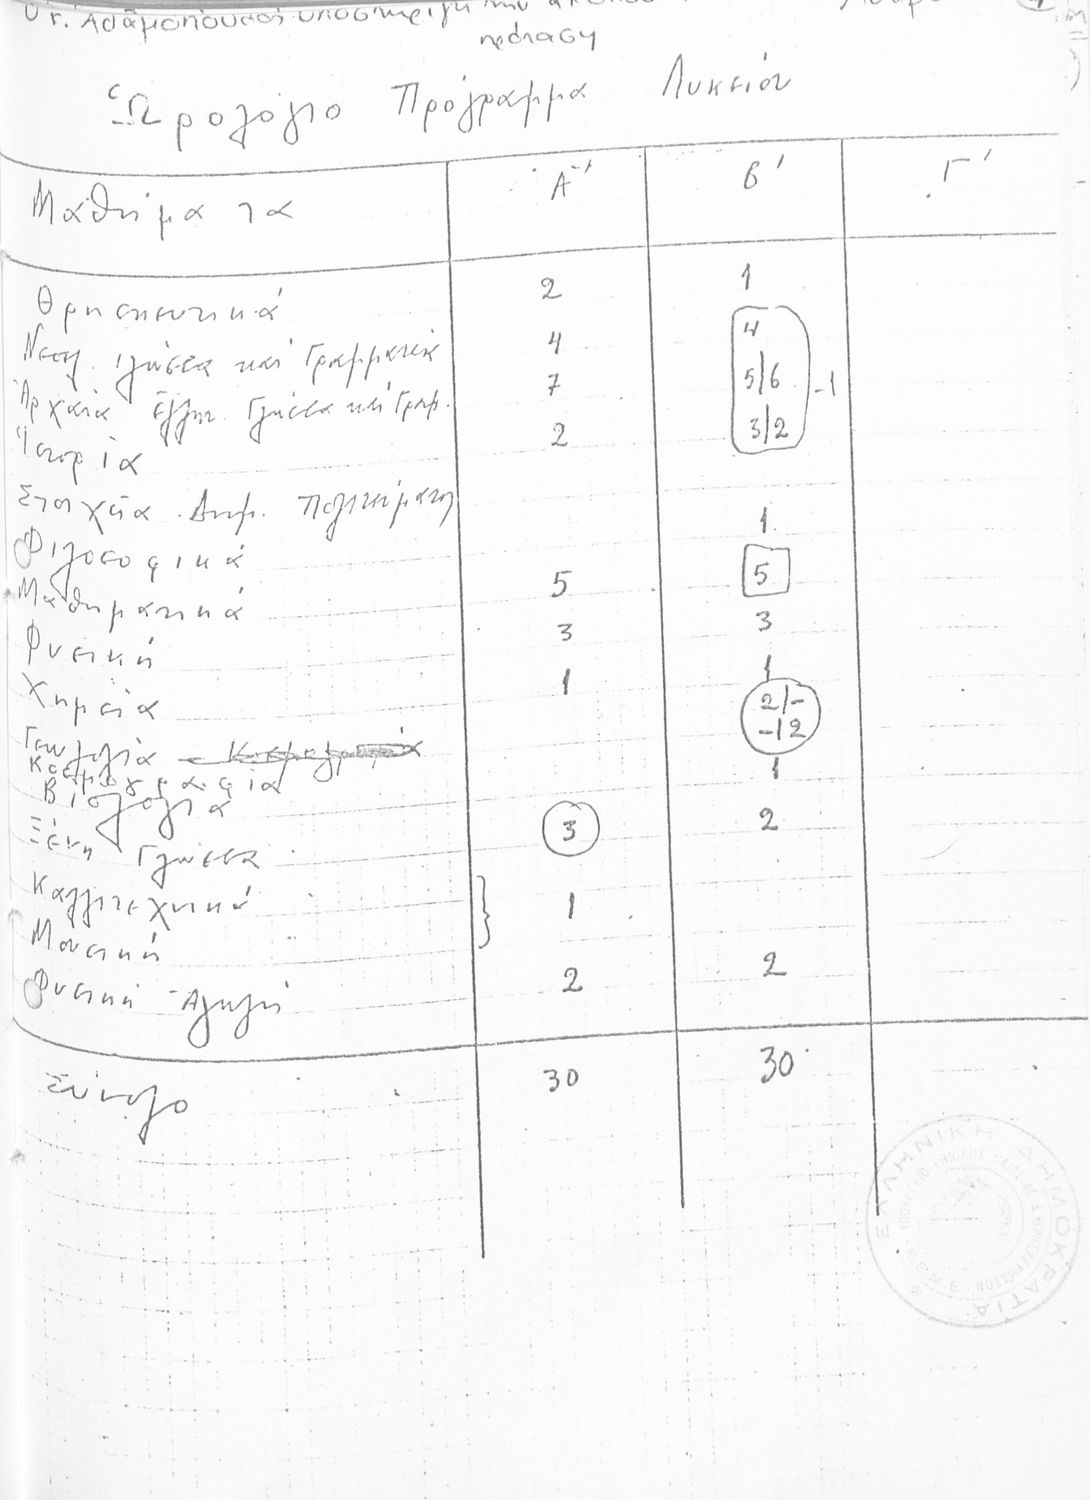 Ο κ. Αδαμόπουλος υποστηρίζει την
πρόταση
Ὡρολόγιο Πρόγραμμα Λυκείου
Μαθήματα Α' Β' Γ'
Θρησκευτικά 2 1
Νεοελ. Γλώσσα καί Γραμματεία 4 4
Ἀρχαία Ἑλλην. Γλώσσα καί Γραμ. 7 5/6 -1
Ἱστορία 2 3/2
Στοιχεῖα Δημ. Πολιτεύματος
Φιλοσοφικά 1
Μαθηματικά 5 5
Φυσική 3 3
Χημεία 1 1
Γεωλογία - Κοσμογραφία 2/-
Κοσμογραφία -/2
Βιολογία 1
Ξένη Γλώσσα 3 2
Καλλιτεχνικά } 1
Μουσική
Φυσική Ἀγωγή 2 2
Σύνολο 30 30
ΕΛΛΗΝΙΚΗ ΔΗΜΟΚΡΑΤΙΑ
ΥΠΟΥΡΓΕΙΟ ΕΘΝΙΚΗΣ ΠΑΙΔΕΙΑΣ & ΘΡΗΣΚΕΥΜΑΤΩΝ